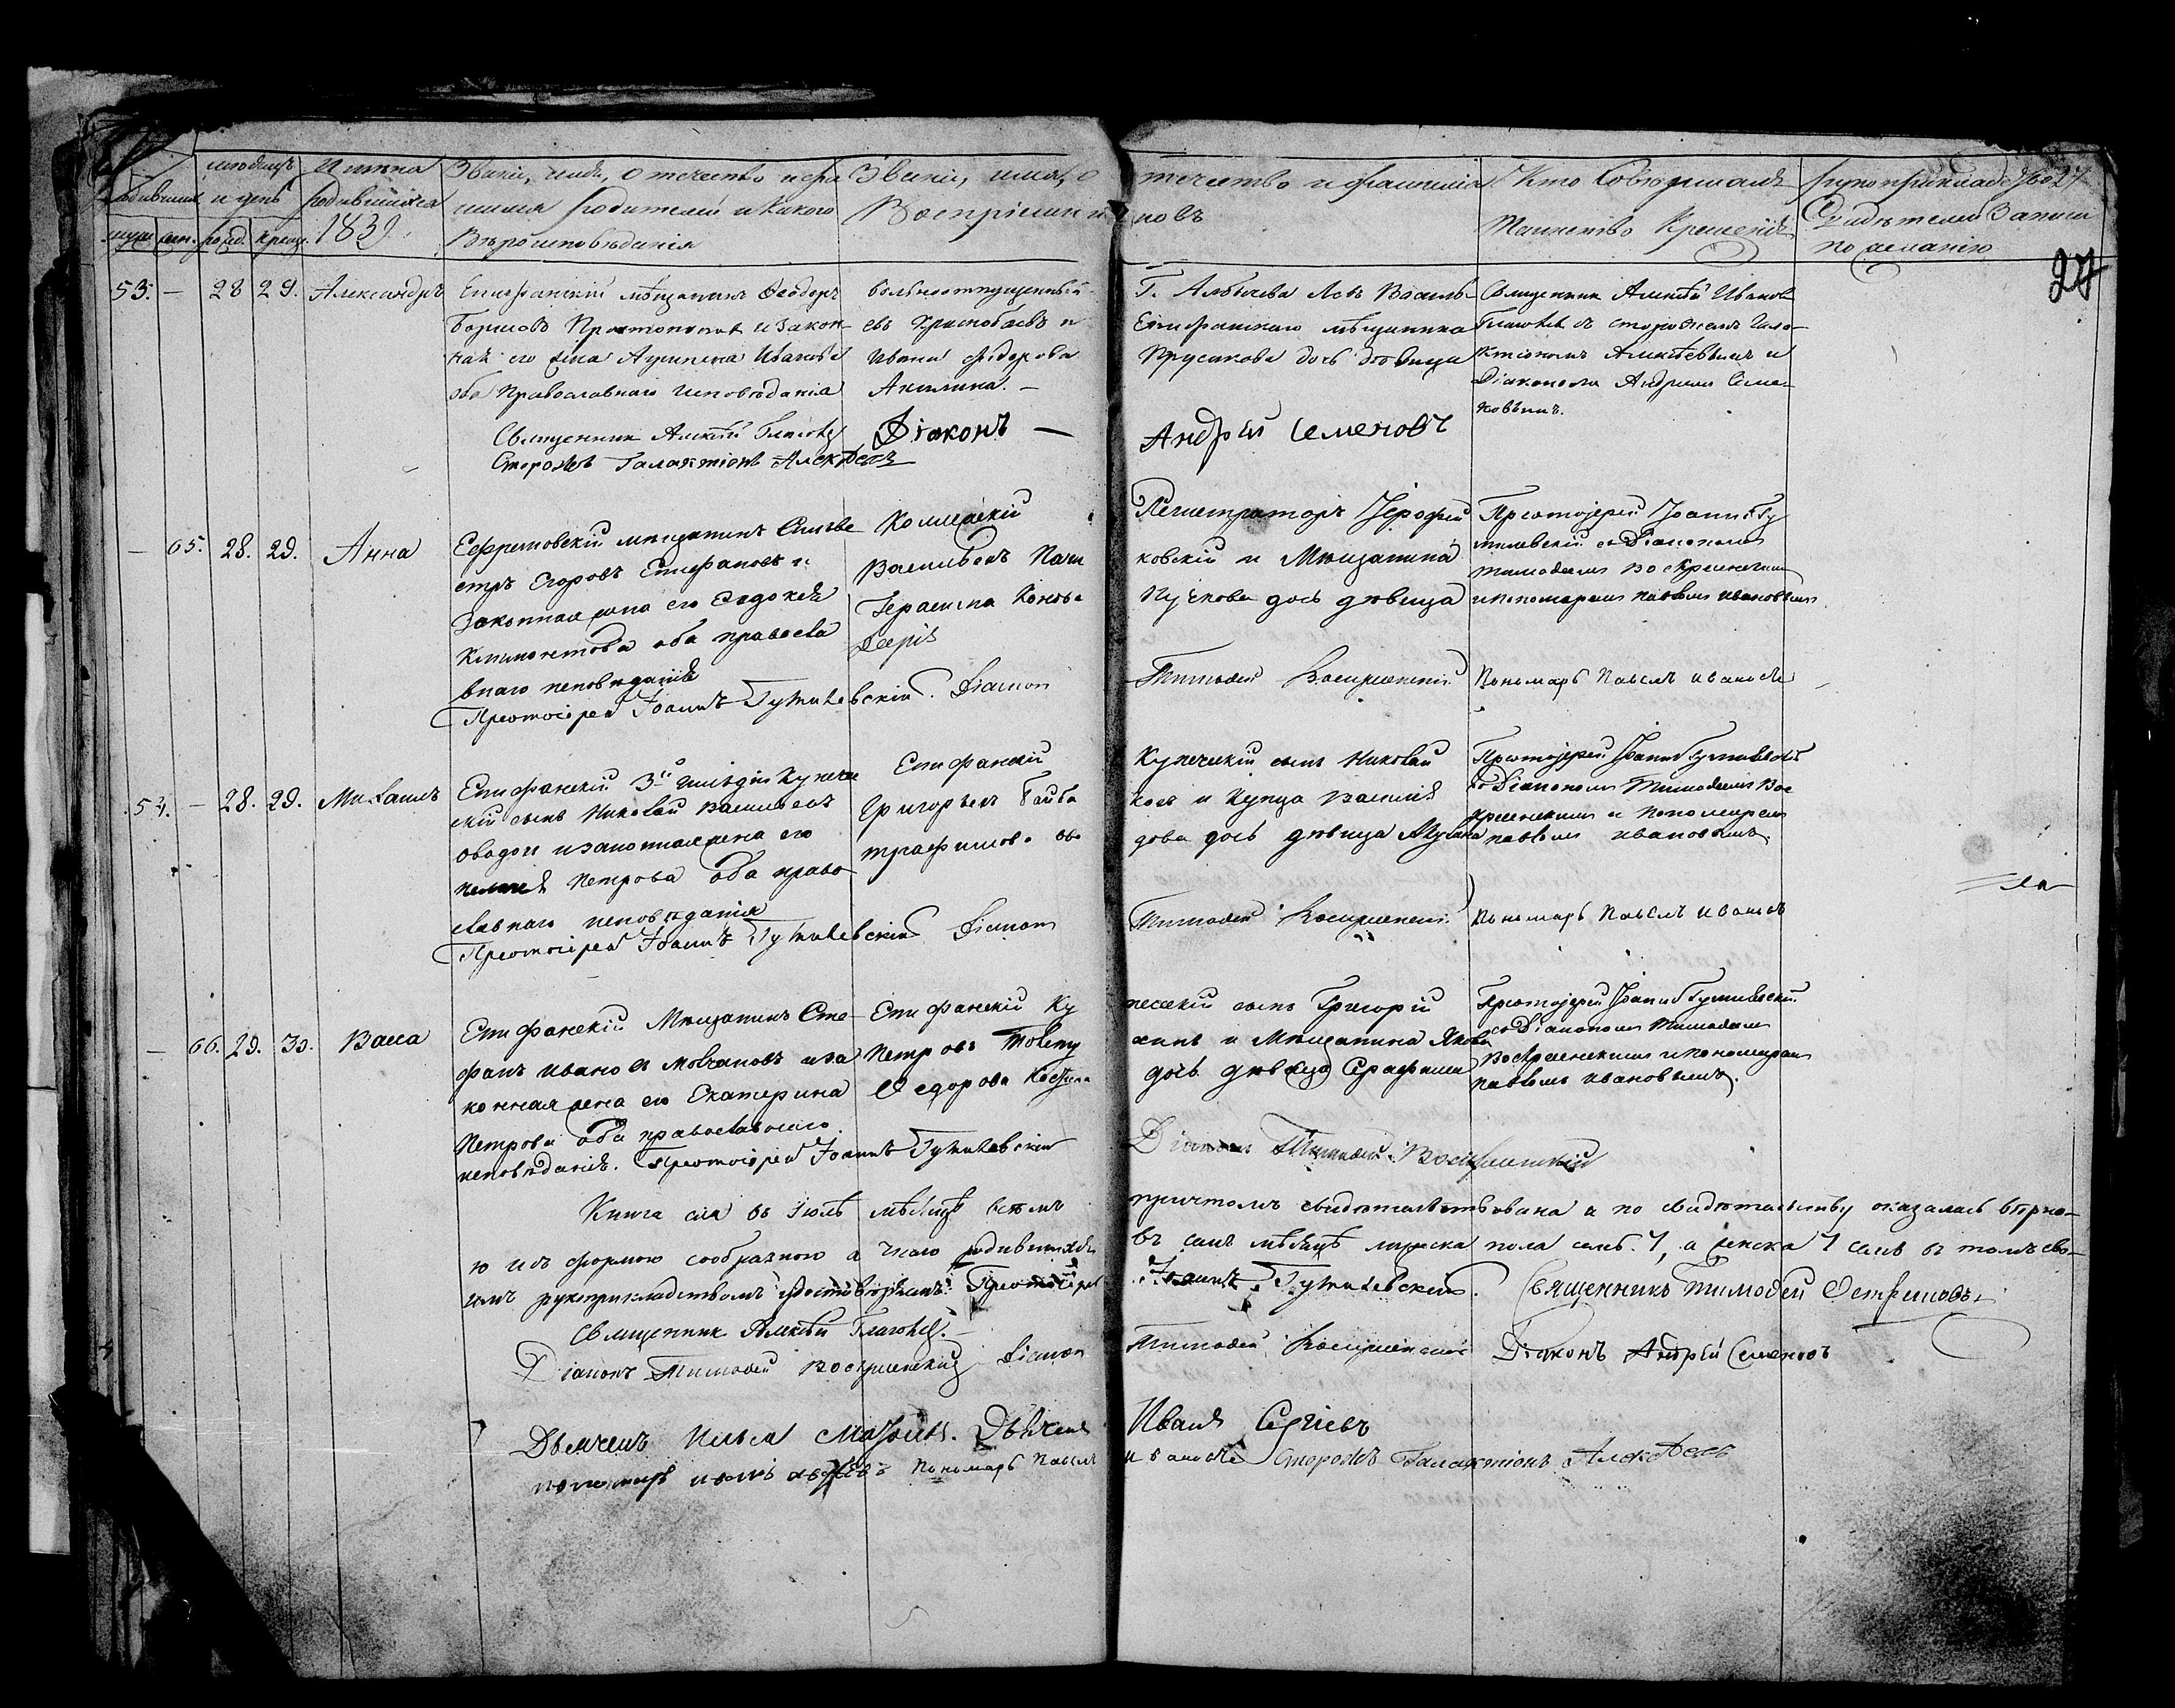 мѣсяцъ
и день
родившихся
муж. жен. рожд. крещ.
Имена
родившихся
1839.
Званіе, имя, отчество и фа
милія родителей и какого
Вѣроисповѣданія
Званіе, имя, о
Воспріемни
тчество и фамилія
ковъ
Кто совершалъ
Таинство Крещенія
рукоприкладство
Свидѣтелей записи
по желанію
27
53. — 28 29. Александръ
Епифанскій мѣщанинъ Ѳеодоръ
Борисовъ Протопоповъ и закон-
ная его жена Акилина Иванова
оба православнаго исповѣданія
Священникъ Алексѣй Глаголевъ
Сторожъ Галактіонъ Алексѣевъ
вольноотпущенный
евъ Христобаевъ и
Ивана Ѳедорова
Акилина. —
Діаконъ —
Г. Альбычева Левъ Василь-
Епифанскаго мѣщанина
Прусакова дочь дѣвица
Андрей Семеновъ
Священникъ Алексѣй Ивановъ
Глаголевъ съ сторожемъ Гала-
ктіономъ Алексѣевымъ и
Діакономъ Андреемъ Семе-
новымъ.
— 65. 28. 29. Анна
Ефремовскій мѣщанинъ Сильве
стръ Егоровъ Епифановъ и
Законная жена его Евдокія
оба правосла
внаго исповѣданія
Протоіерей Іоаннъ Гумилевскій. Діаконъ
Коллежскій
Васильевъ Пань
Герасима Конова
Дарія
Регистраторъ Іерофей
ковскій и Мѣщанина
Пучкова дочь дѣвица
Тимоѳей Воскресенскій
Протоіерей Іоаннъ Гу
милевскій съ Діакономъ
Тимоѳеемъ Воскресенскимъ
и пономаремъ Павломъ Ивановымъ
Пономарь Павелъ Ивановъ
54. — 28. 29. Михаилъ
Епифанскій 3й гильдіи Купече
скій сынъ Николай Васильевъ
Оводов и законная жена его
Пелагея Петрова оба право
славнаго исповѣданія
Протоіерей Іоаннъ Гумилевскій Діаконъ
Епифанскій
Григорьевъ Байба
Трафимова Ово
Купеческій сынъ Николай
ковъ и Купца Василія
дова дочь дѣвица Акулина
Тимоѳей Воскресенскій
Протоіерей Іоаннъ Гумилевскій
съ Діакономъ Тимоѳеемъ Вос
кресенскимъ и Пономаремъ
Павломъ Ивановымъ.
Пономарь Павелъ Ивановъ
— 66. 29. 30. Васса
Епифанскій Мѣщанинъ Сте
фанъ Ивановъ Молчановъ и за
конная жена его Екатерина
Петрова оба православнаго
исповѣданія. Протоіерей Іоаннъ Гумилевскій
Епифанскій Ку
Петровъ
Ѳедорова
печескій сынъ Григорій
хинъ и Мѣщанина Якова
дочь дѣвица Серафима
Діаконъ Тимоѳей Воскресенскій
Протоіерей Іоаннъ Гумилевскій
съ Діакономъ Тимоѳеемъ
Воскресенскимъ и пономаремъ
Павломъ Ивановымъ.
Книга сія въ Іюлѣ мѣсяцѣ всѣмъ причтомъ свидѣтельствована и по свидѣтельству оказалась вѣрно-
ю и съ формою сообразною а число родившихся въ семъ мѣсяцѣ мужска пола семь. 7, а женска 7 семь въ томъ сво-
имъ рукоприкладствомъ удостовѣряемъ: Протоіерей Іоаннъ Гумилевскій. Священникъ Тимоѳей Остроумовъ
Священникъ Алексѣй Глаголевъ.
Діаконъ Тимоѳей Воскресенскій Діаконъ Тимоѳей Воскресенскій Діаконъ Андрей Семеновъ
Дьячекъ Илья Дьячекъ Иванъ Сергіевъ
пономарь Пономарь Павелъ Ивановъ Сторожъ Галактіонъ Алексѣевъ